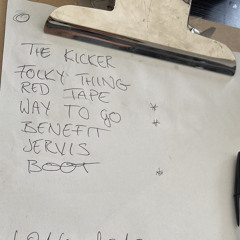 THE KICKER
FOLKY THING
RED TAPE
WAY TO GO *
BENEFIT *
JERVIS
BOOT *